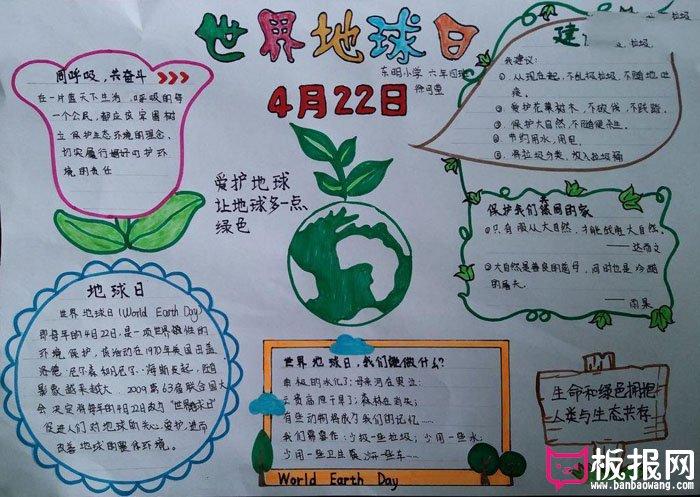 世界地球日
4月22日
东明小学 六年四班
同呼吸,共奋斗
在一片蓝天下生活,呼吸的每
一个公民,都应该牢固树
立保护生态环境的理念,
切实履行好呵护环
境的责任
爱护地球
让地球多一点
绿色
建
我建议:
①从现在起,不乱扔垃圾,不随地吐
痰。
②爱护花草树木,不攀折,不践踏。
③保护大自然,不随便杀生。
④节约用水,用电。
⑤将垃圾分类,放入垃圾桶
保护我们共同的家
①只有服从大自然,才能战胜大自然。
——达尔文
②大自然是善良的慈母,同时也是冷酷
的屠夫。
——雨果
地球日
世界地球日(World Earth Day)
即每年的4月22日,是一项世界性的
环境保护,该活动在1970年美国由盖
洛德·尼尔森和丹尼斯·海斯发起,随后
影响越来越大。2009第63届联合国大
会决定将每年的4月22日定为“世界地球日”
促进人们对地球的关心、爱护,进而
改善地球的整体环境。
世界地球日,我们能做什么?
南极的冰化了;母亲河在哭泣;
云贵高原干旱了;森林在消失;
有些动物将成了我们的记忆……
我们要警惕:少扔一些垃圾;少用一些水;
少用一些卫生筷,少开一些车……
World Earth Day
生命和绿色拥抱
人类与生态共存
板报网
www.banbaowang.com